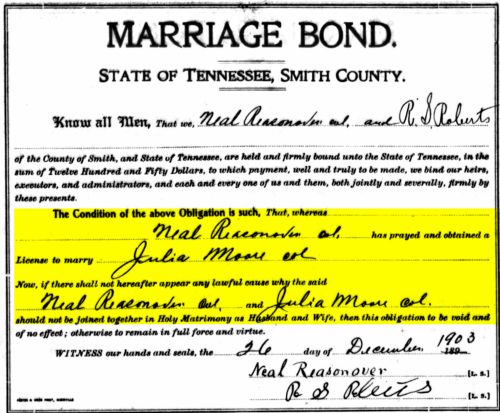 MARRIAGE BOND.
STATE OF TENNESSEE, SMITH COUNTY.
Know all Men, That we, Neal Reasonover col. and R. S. Roberts
of the County of Smith, and State of Tennessee, are held and firmly bound unto the State of Tennessee, in the
sum of Twelve Hundred and Fifty Dollars, to which payment, well and truly to be made, we bind our heirs,
executors, and administrators, and each and every one of us and them, both jointly and severally, firmly by
these presents.
The Condition of the above Obligation is such, That, whereas
Neal Reasonover col. has prayed and obtained a
License to marry Julia Moore col
Now, if there shall not hereafter appear any lawful cause why the said
Neal Reasonover Col. and Julia Moore col.
should not be joined together in Holy Matrimony as Husband and Wife, then this obligation to be void and
of no effect; otherwise to remain in full force and virtue.
WITNESS our hands and seals, the 26 day of December 1903 189
Neal Reasonover [L. S.]
R S Roberts [L. S.]